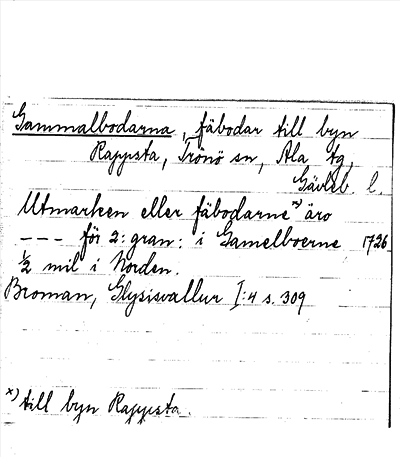 Gammalbodarna, fäbodar till byn
Rappsta, Trönö sn, Ala tg,
Gävleb. l.
Utmarken eller fäbodarne x) äro
--- för 2: gran: i Gamelboerne 1726
½ mil i Norden.
Broman, Glysisvallur I:4 s. 309
x) till byn Rappsta.